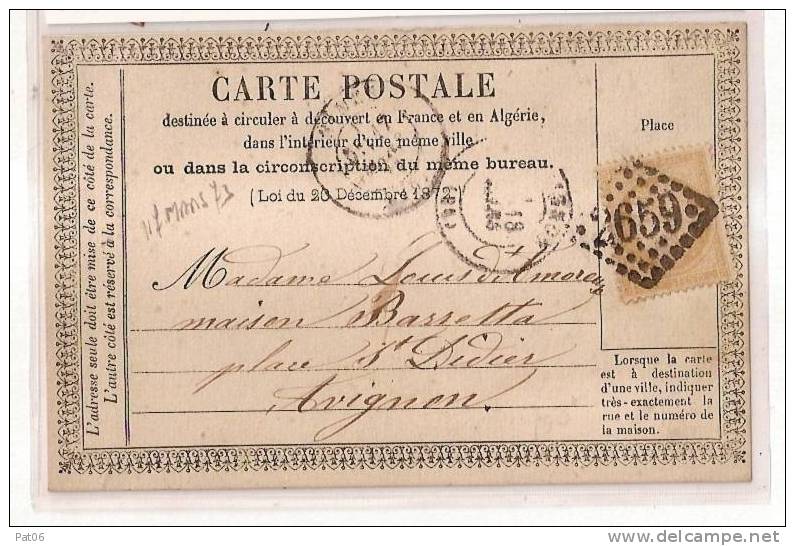 CARTE POSTALE
destinée à circuler à découvert en France et en Algérie,
dans l'intérieur d'une même ville
ou dans la circonscription du même bureau.
(Loi du 20 Décembre 1872)
Place
L'adresse seule doit être mise de ce côté de la carte.
L'autre côté est réservé à la correspondance.
17 MARS 73
659
Madame Louis d'Amoreux
maison Barretta
place St Didier
Avignon.
Lorsque la carte
est à destination
d'une ville, indiquer
très-exactement la
rue et le numéro de
la maison.
Pat06
www.delcampe.net